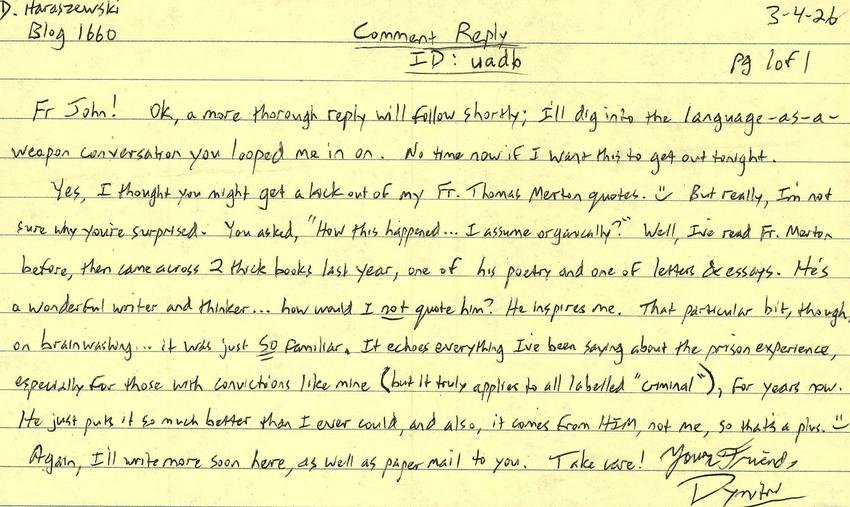 D. Haraszewski
Blog 1660
3-4-26
Comment Reply
ID: uadb
pg 1 of 1
Fr John! Ok, a more thorough reply will follow shortly; I'll dig into the language-as-a-
weapon conversation you looped me in on. No time now if I want this to get out tonight.
Yes, I thought you might get a kick out of my Fr. Thomas Merton quotes. But really, I'm not
sure why you're surprised. You asked, "How this happened... I assume organically?" Well, I've read Fr. Merton
before, then came across 2 thick books last year, one of his poetry and one of letters & essays. He's
a wonderful writer and thinker... how would I not quote him? He inspires me. That particular bit, though,
on brainwashing... it was just so familiar. It echoes everything I've been saying about the prison experience,
especially for those with convictions like mine (but it truly applies to all labelled "criminal"), for years now.
He just puts it so much better than I ever could, and also, it comes from HIM, not me, so that's a plus.
Again, I'll write more soon here, as well as paper mail to you. Take care! Your Friend,
Dymitri